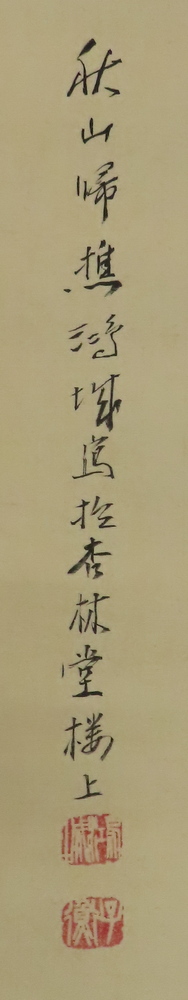 秋山帰樵鴻城写於杏林堂楼上